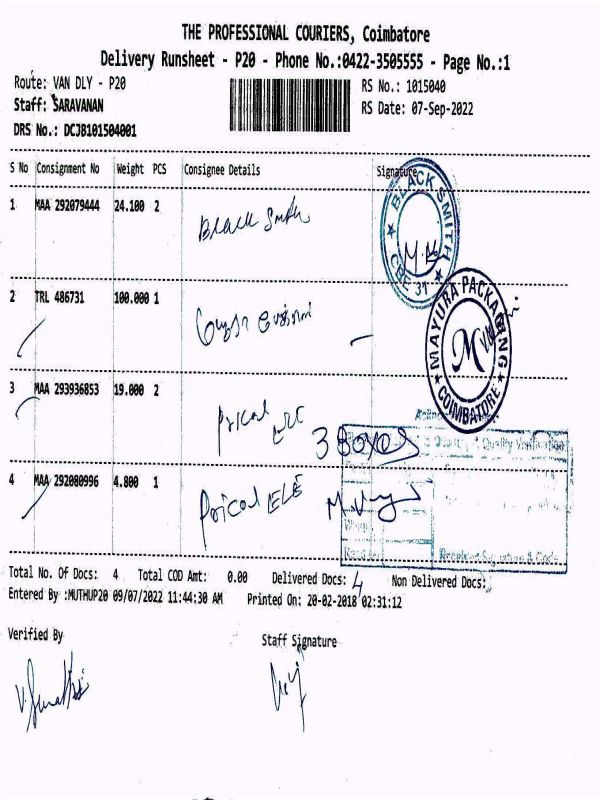 THE PROFESSIONAL COURIERS, Coimbatore
Delivery Runsheet - P20 - Phone No.:0422-3505555 - Page No.:1
Route: VAN DLY - P20
RS No.: 1015040
Staff: SARAVANAN
RS Date: 07-Sep-2022
DRS No.: DCJB101504001
S No Consignment No Weight PCS Consignee Details Signature
1 MAA 292079444 24.100 2 Black Smith
BLACK SMITH
CBE 31
2 TRL 486731 100.000 1
MAYURA PACKAGING
M
COIMBATORE
3 MAA 293936853 19.000 2 Pricol
3 Boxes
Quality Verification
4 MAA 292080996 4.800 1 Pricol ELE
Total No. Of Docs: 4 Total COD Amt: 0.00 Delivered Docs: 4 Non Delivered Docs:
Entered By :MUTHUP20 09/07/2022 11:44:30 AM Printed On: 20-02-2018 02:31:12
Verified By
Staff Signature